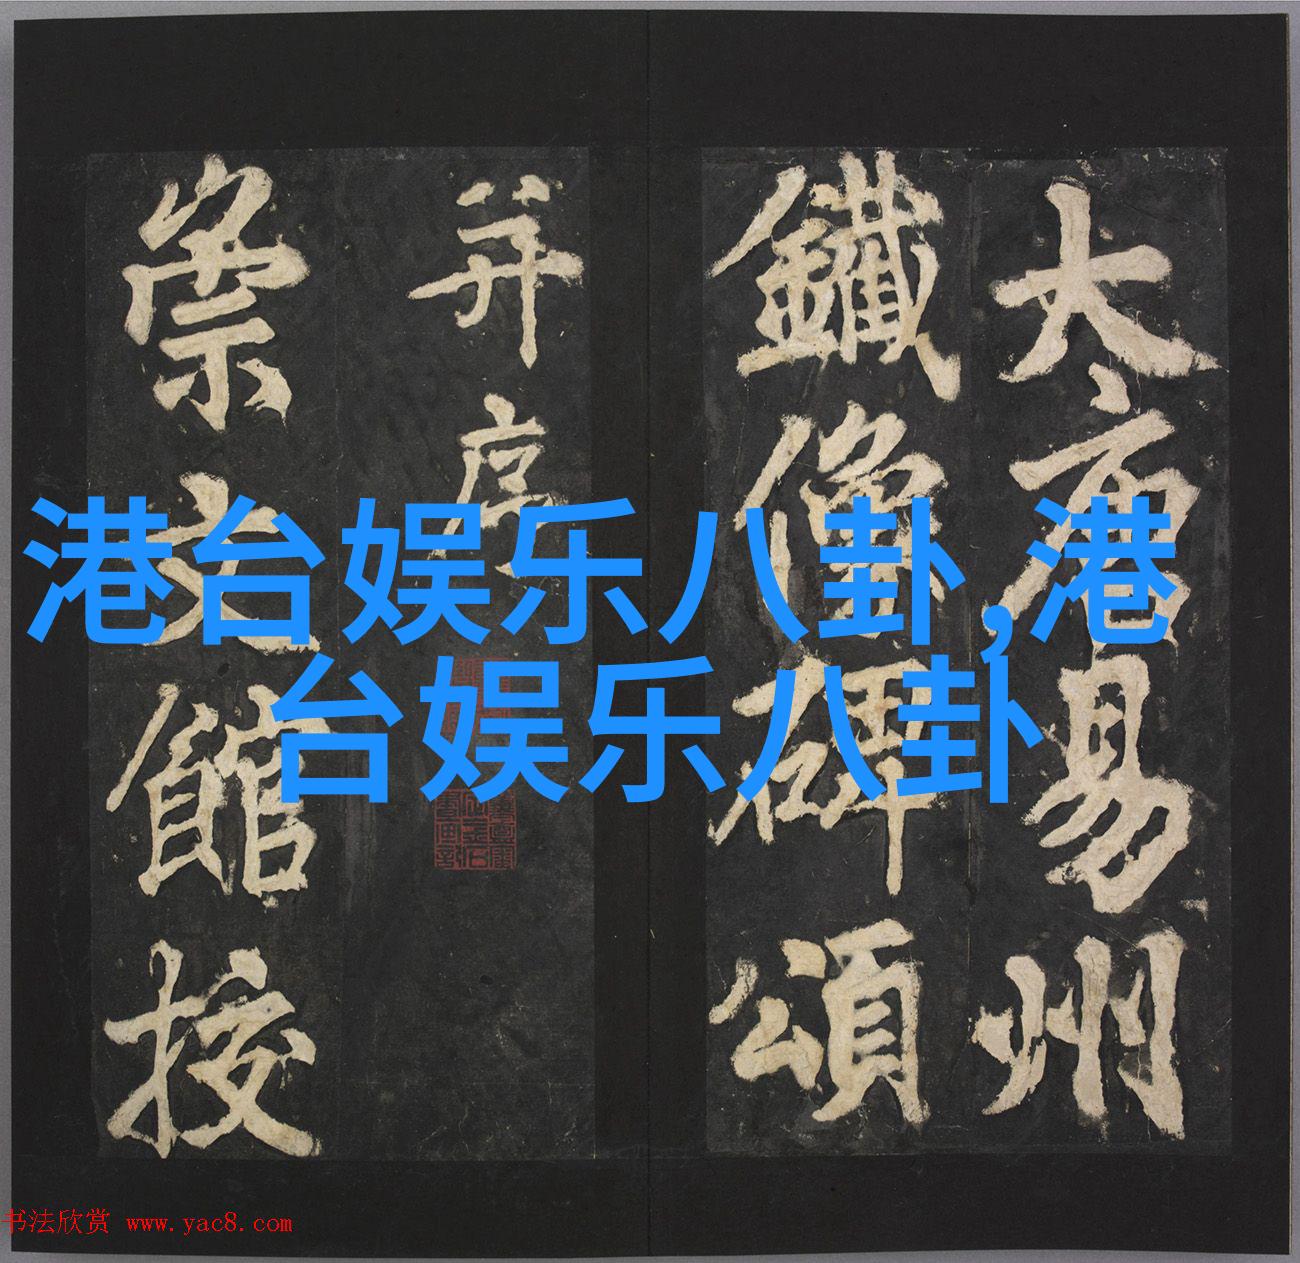 大唐易州
鐵像碑頌
并序
崇文館校
港台娱乐八卦,港
台娱乐八卦
书法欣赏 www.yac8.com